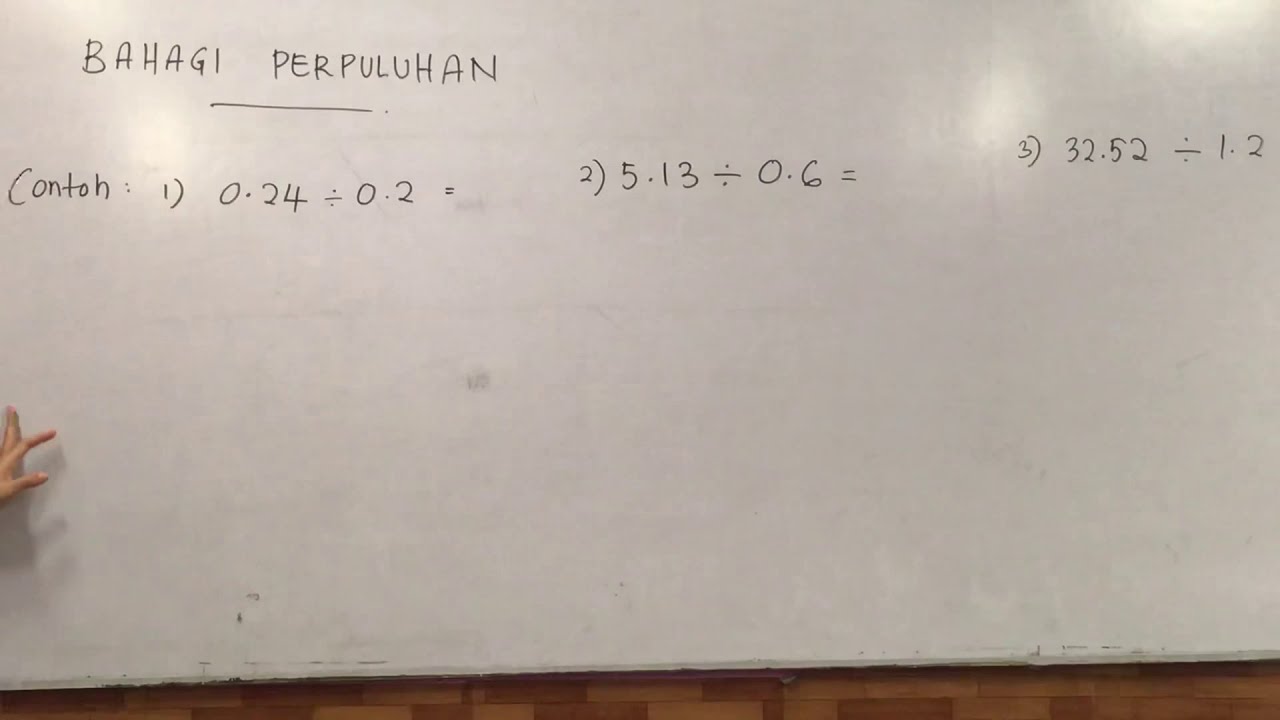 BAHAGI PERPULUHAN
Contoh: 1) 0.24 ÷ 0.2 =
2) 5.13 ÷ 0.6 =
3) 32.52 ÷ 1.2